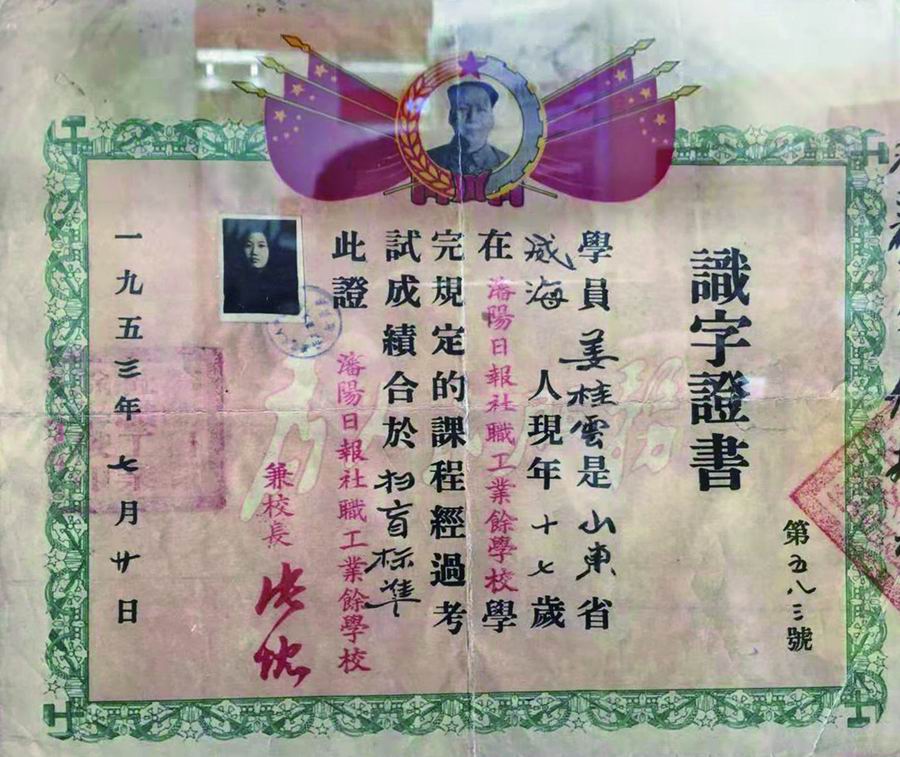 識字證書
第五八三號
學員姜桂雲是山東省
威海人現年十七歲
在瀋陽日報社職工業餘學校學
完規定的課程經過考
試成績合於扫盲标準
此證
瀋陽日報社職工業餘學校
兼校長
一九五三年七月廿日